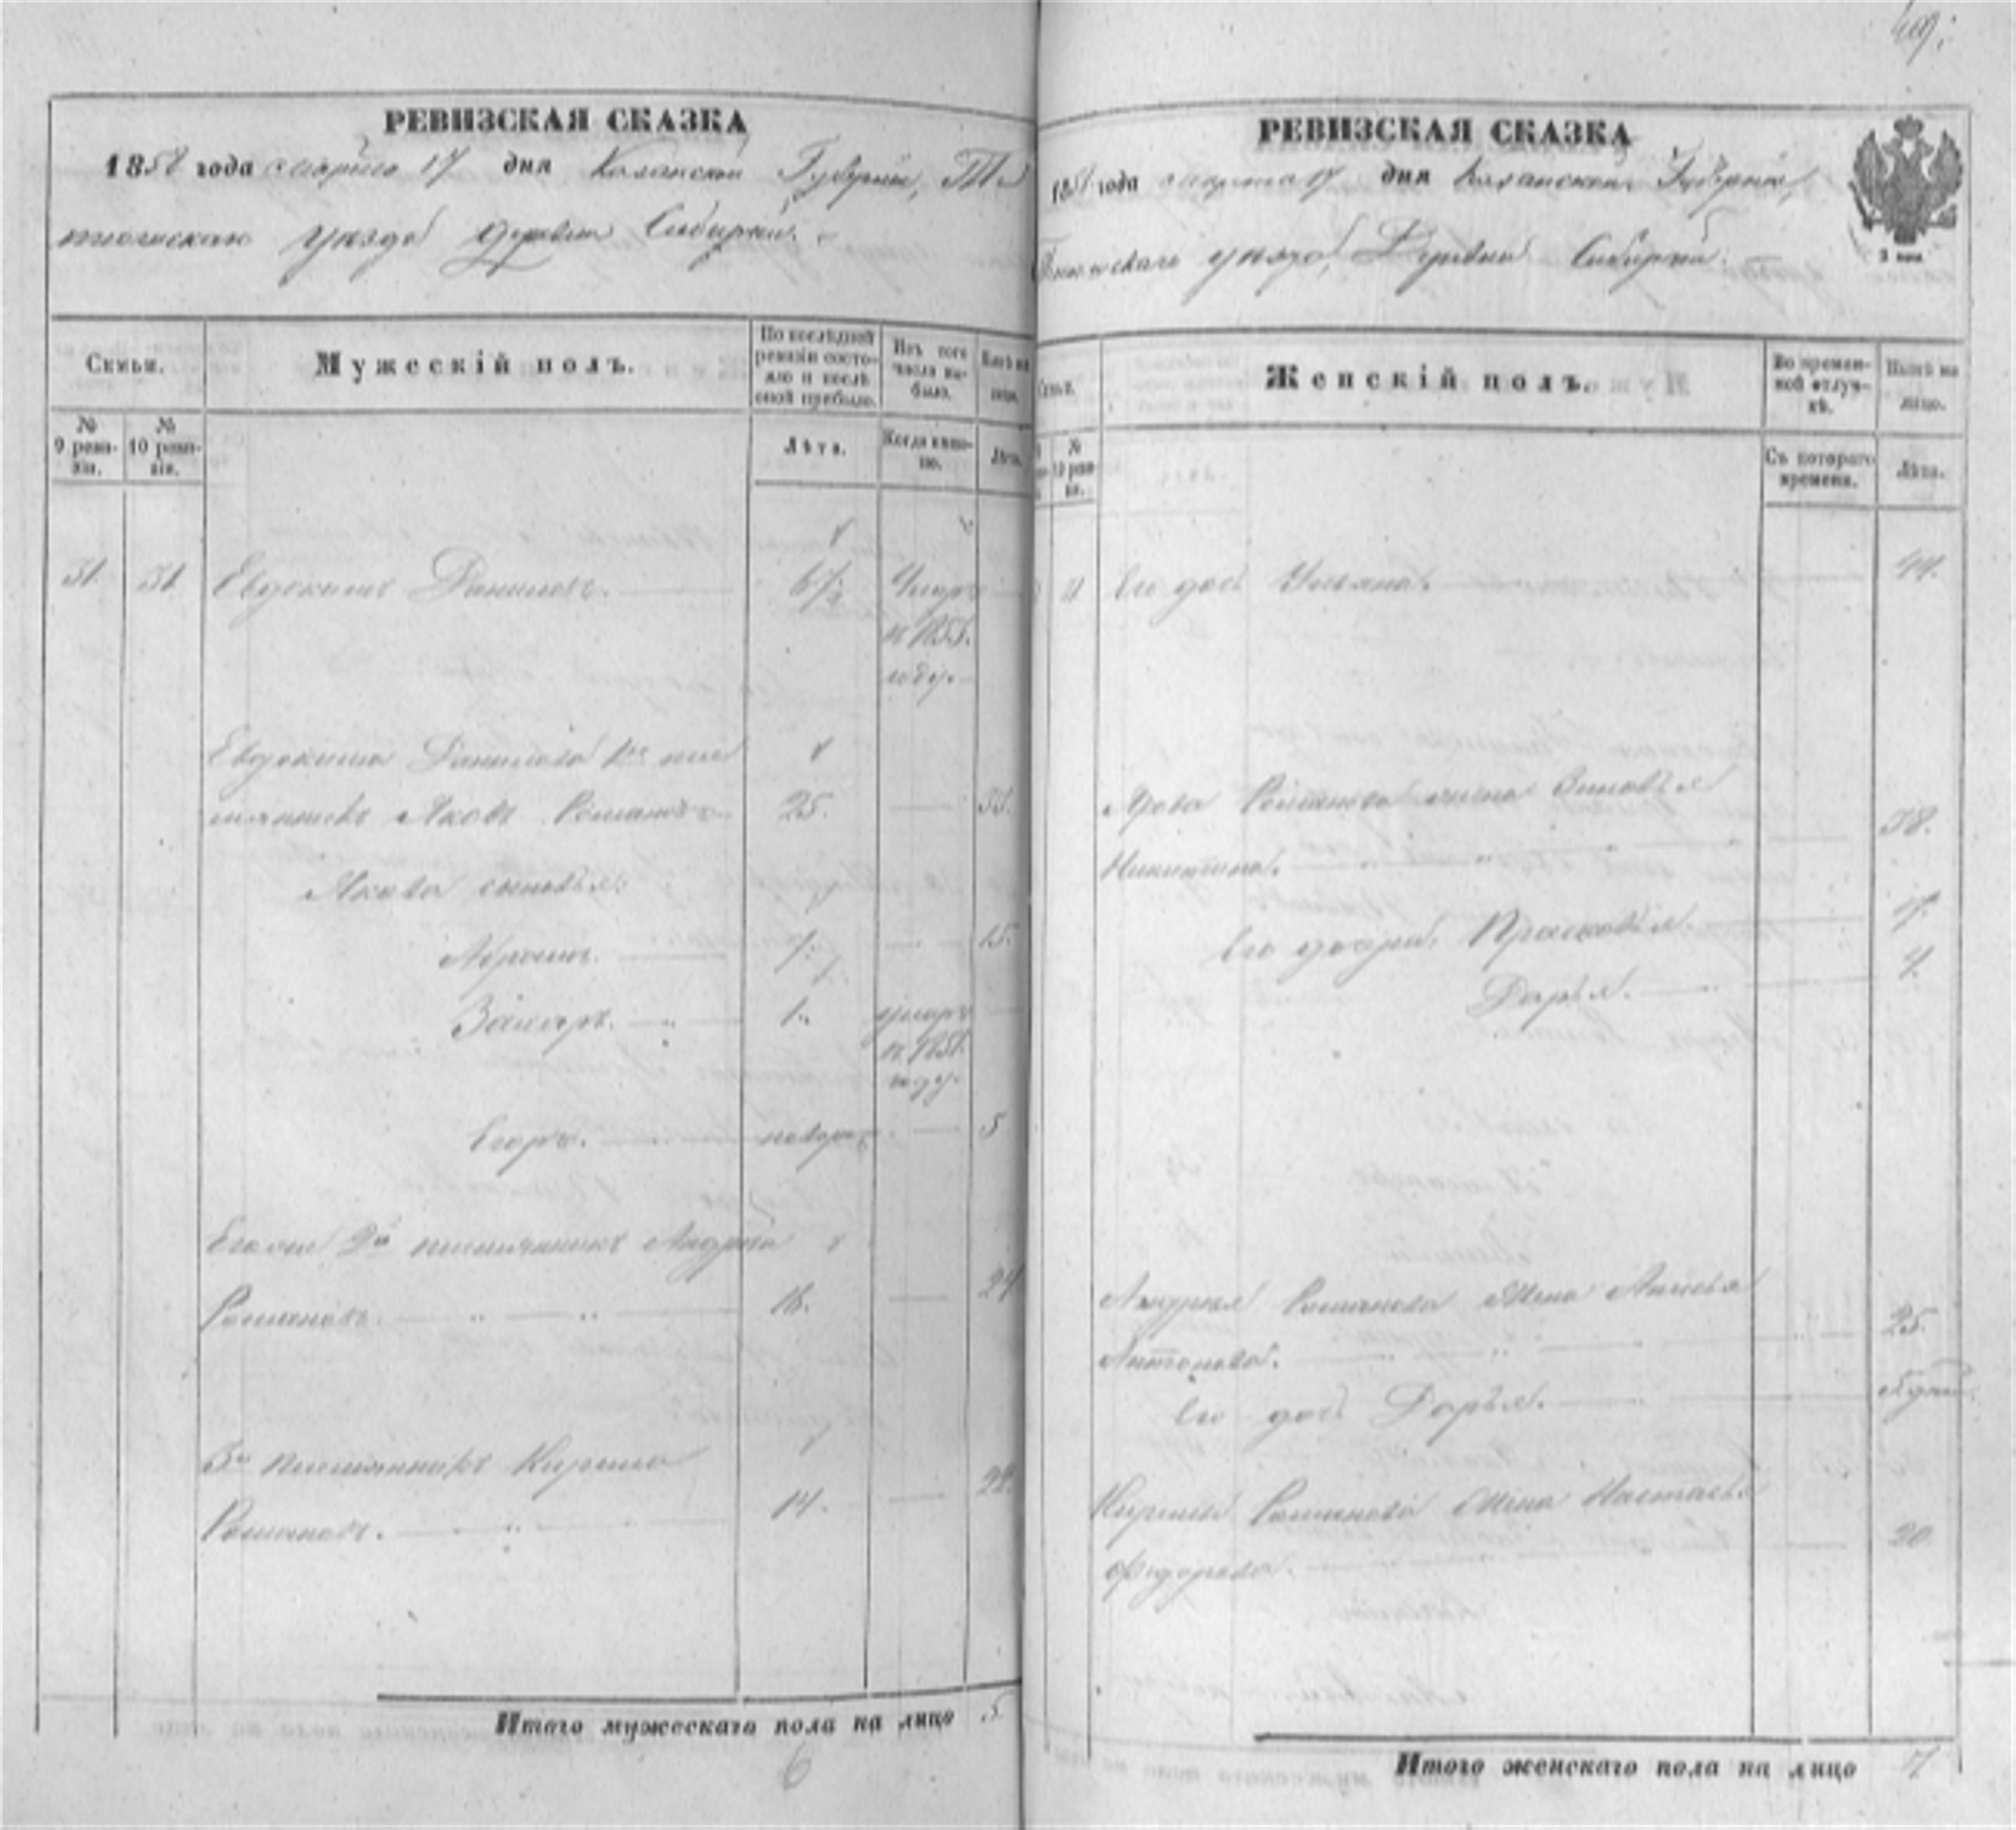 РЕВИЗСКАЯ СКАЗКА
1858 года марта 17 дня Казанской Губернiи, Те
тюшскаго уѣзда деревни Сибирки.
Семьи.
Мужескiй полъ.
По послѣдней ревизiи состояло и послѣ оной прибыло.
Изъ того числа выбыло.
Нынѣ на лицо.
№ 9 ревизiи.
№ 10 ревизiи.
Лѣта.
Когда именно.
Лѣта.
31. 31 Евдокимъ Даниловъ. 67 Умеръ
въ 185
году.
Евдокима Данилова 1й пле
мянникъ Яковъ Романовъ 25. 33.
Якова сыновья:
Абрамъ. 7. 15.
Захаръ. 1. умеръ
въ 1851.
году.
Егоръ. новорож 5
Его же 2й племянникъ Андрей
Романовъ. 16. 24
3й племянникъ Кирила
Романовъ. 14. 22.
Итого мужескаго пола на лицо 5
6
РЕВИЗСКАЯ СКАЗКА
1858 года марта 17 дня Казанской Губернiи,
Тетюшскаго уѣзда, Деревни Сибирки.
3 коп
Семьи.
Женскiй полъ.
Во временной отлучкѣ.
Нынѣ на лицо.
№ 10 ревизiи.
Съ котораго времени.
Лѣта.
31 Его дочь Ульяна. 44.
Якова Романова жена Зиновья
Никитина. 38.
Его дочери, Прасковья. 17.
Дарья. 4.
Андрея Романова жена Анисья
Антонова. 25.
Его дочь Дарья.
Кирилы Романова жена Настасья
Федорова. 20
Итого женскаго пола на лицо 7